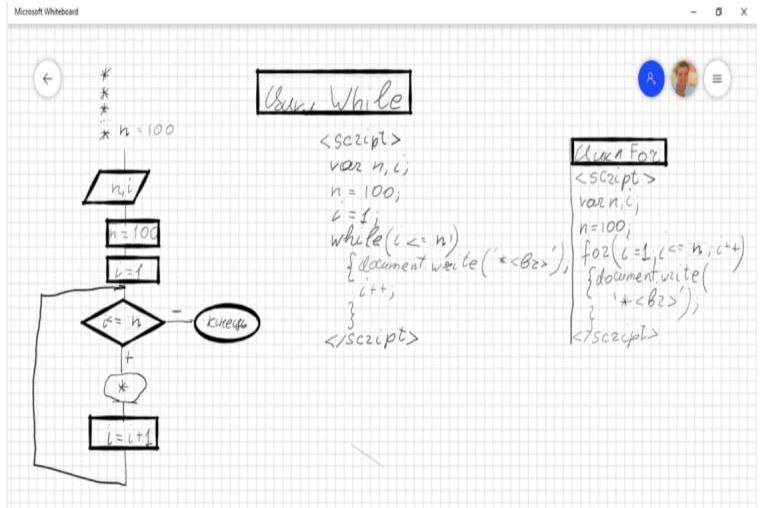 Microsoft Whiteboard
*
*
*
* n = 100
n, i
n = 100
i = 1
i <= n
-
кінець
+
*
i = i + 1
Цикл While
<script>
var n, i;
n = 100;
i = 1;
while(i <= n)
{document.write('*<br>');
i++;
}
</script>
Цикл For
<script>
var n, i;
n = 100;
for(i=1; i<= n; i++)
{document.write(
'*<br>');
}
</script>